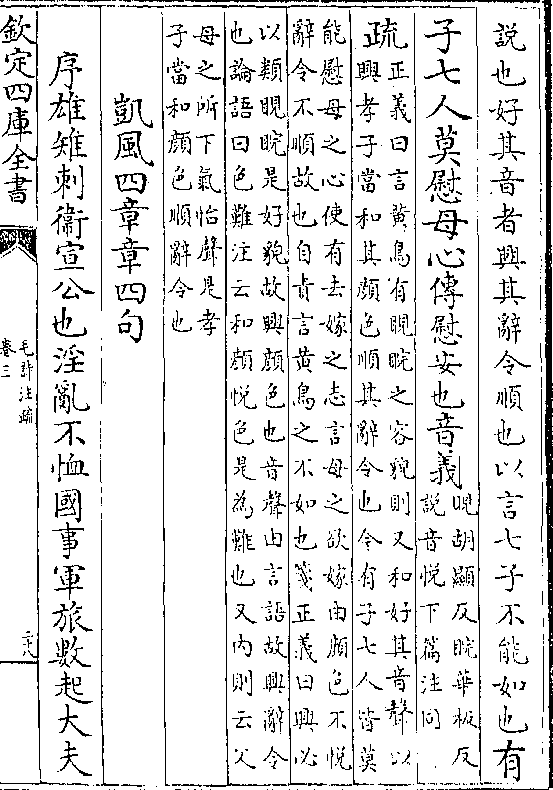 說也好其音者興其辭令順也以言七子不能如也有
子七人莫慰母心傳慰安也音義
睍胡顯反睆華板反
說音悅下篇注同
疏
正義曰言黄鳥有睍睆之容貌則又和好其音聲以
興孝子當和其顔色順其辭令也今有子七人皆莫
能慰母之心使有去嫁之志言母之欲嫁由顔色不悅
辭令不順故也自責言黄鳥之不如也箋正義曰興必
以類睍睆是好貌故興顔色也音聲由言語故興辭令
也論語曰色難注云和顔悅色是為難也又内則云父
母之所下氣怡聲是孝
子當和顔色順辭令也
凱風四章章四句
序雄雉刺衞宣公也淫亂不恤國事軍旅數起大夫
欽定四庫全書
毛詩注疏
卷三